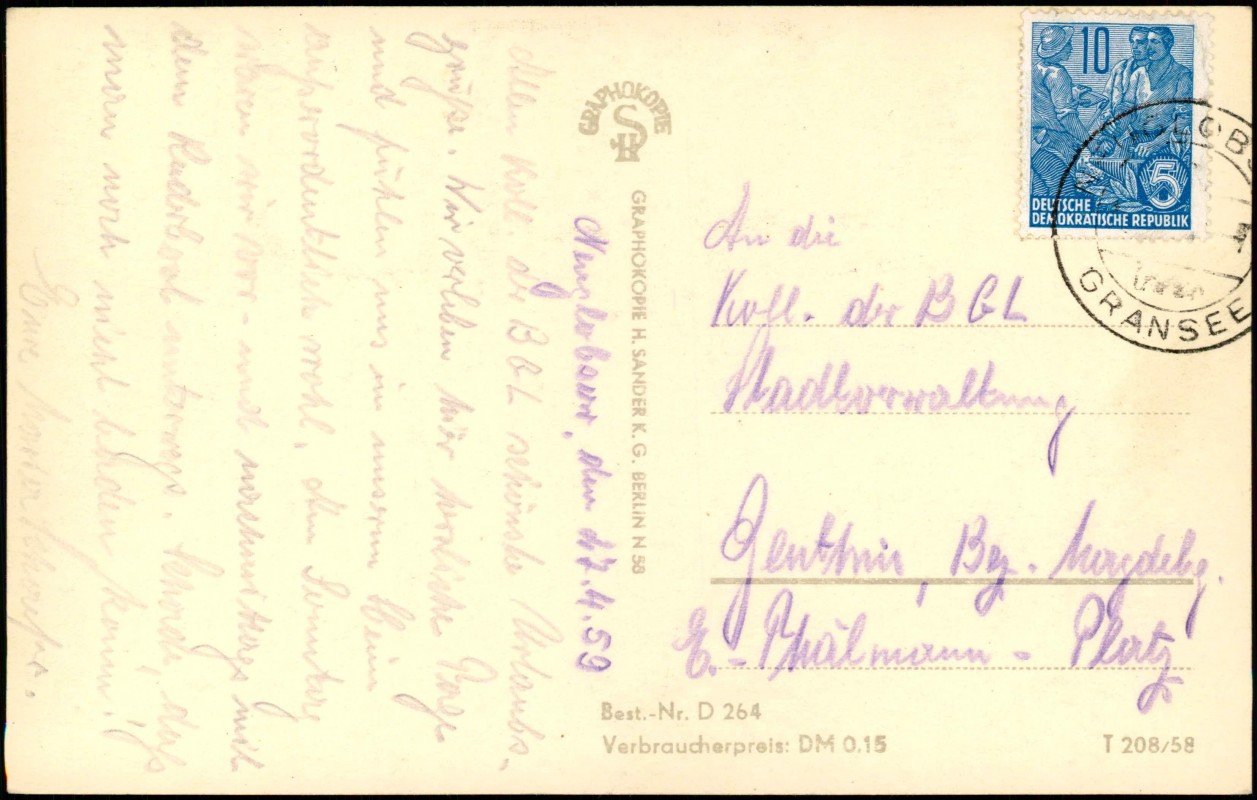 Neuglobsow, den 17.4.59
Allen Koll. der BGL schönste Urlaubs-
grüße. Wir verleben hier herrliche Tage
und fühlen uns in unserem Heim
außerordentlich wohl. Am Sonntag
waren wir vor- und nachmittags mit
dem Ruderboot unterwegs. Schade, daß
man noch nicht baden kann!
Eure
GRAPHOKOPIE
GRAPHOKOPIE H. SANDER K.G. BERLIN N 58
10
5
DEUTSCHE
DEMOKRATISCHE REPUBLIK
GRANSEE
An die
Koll. der BGL
Stadtverwaltung
Genthin, Bez. Magdebg.
E.-Thälmann-Platz
Best.-Nr. D 264
Verbraucherpreis: DM 0.15
T 208/58